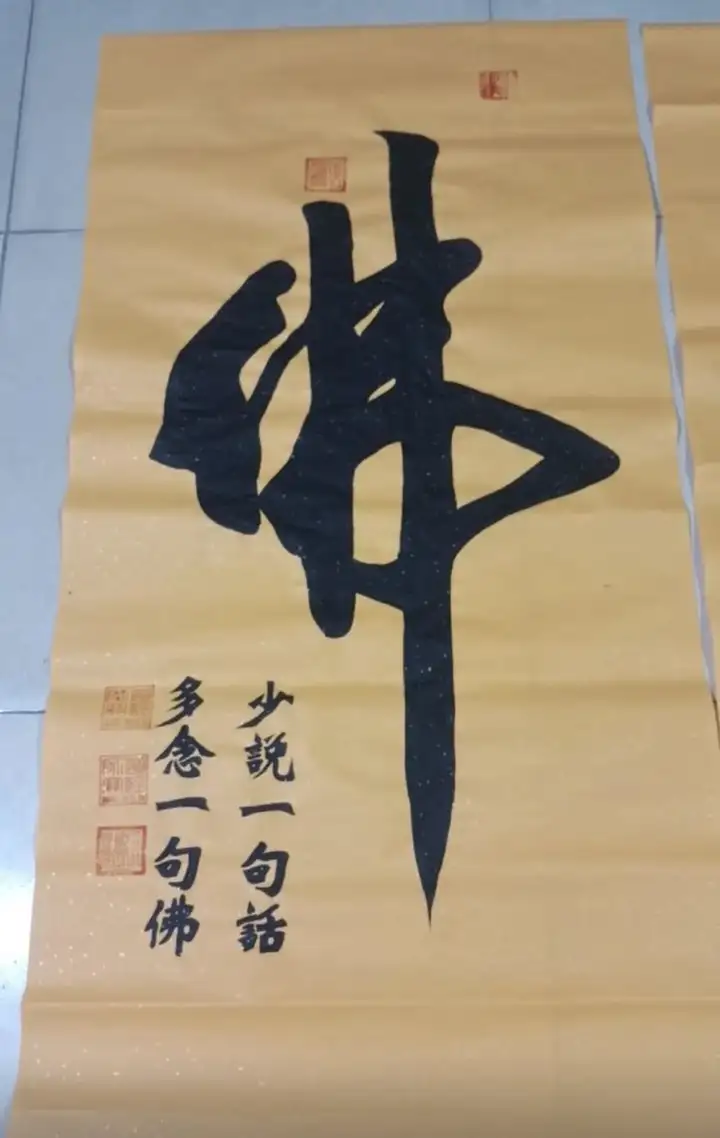 佛
少説一句話
多念一句佛